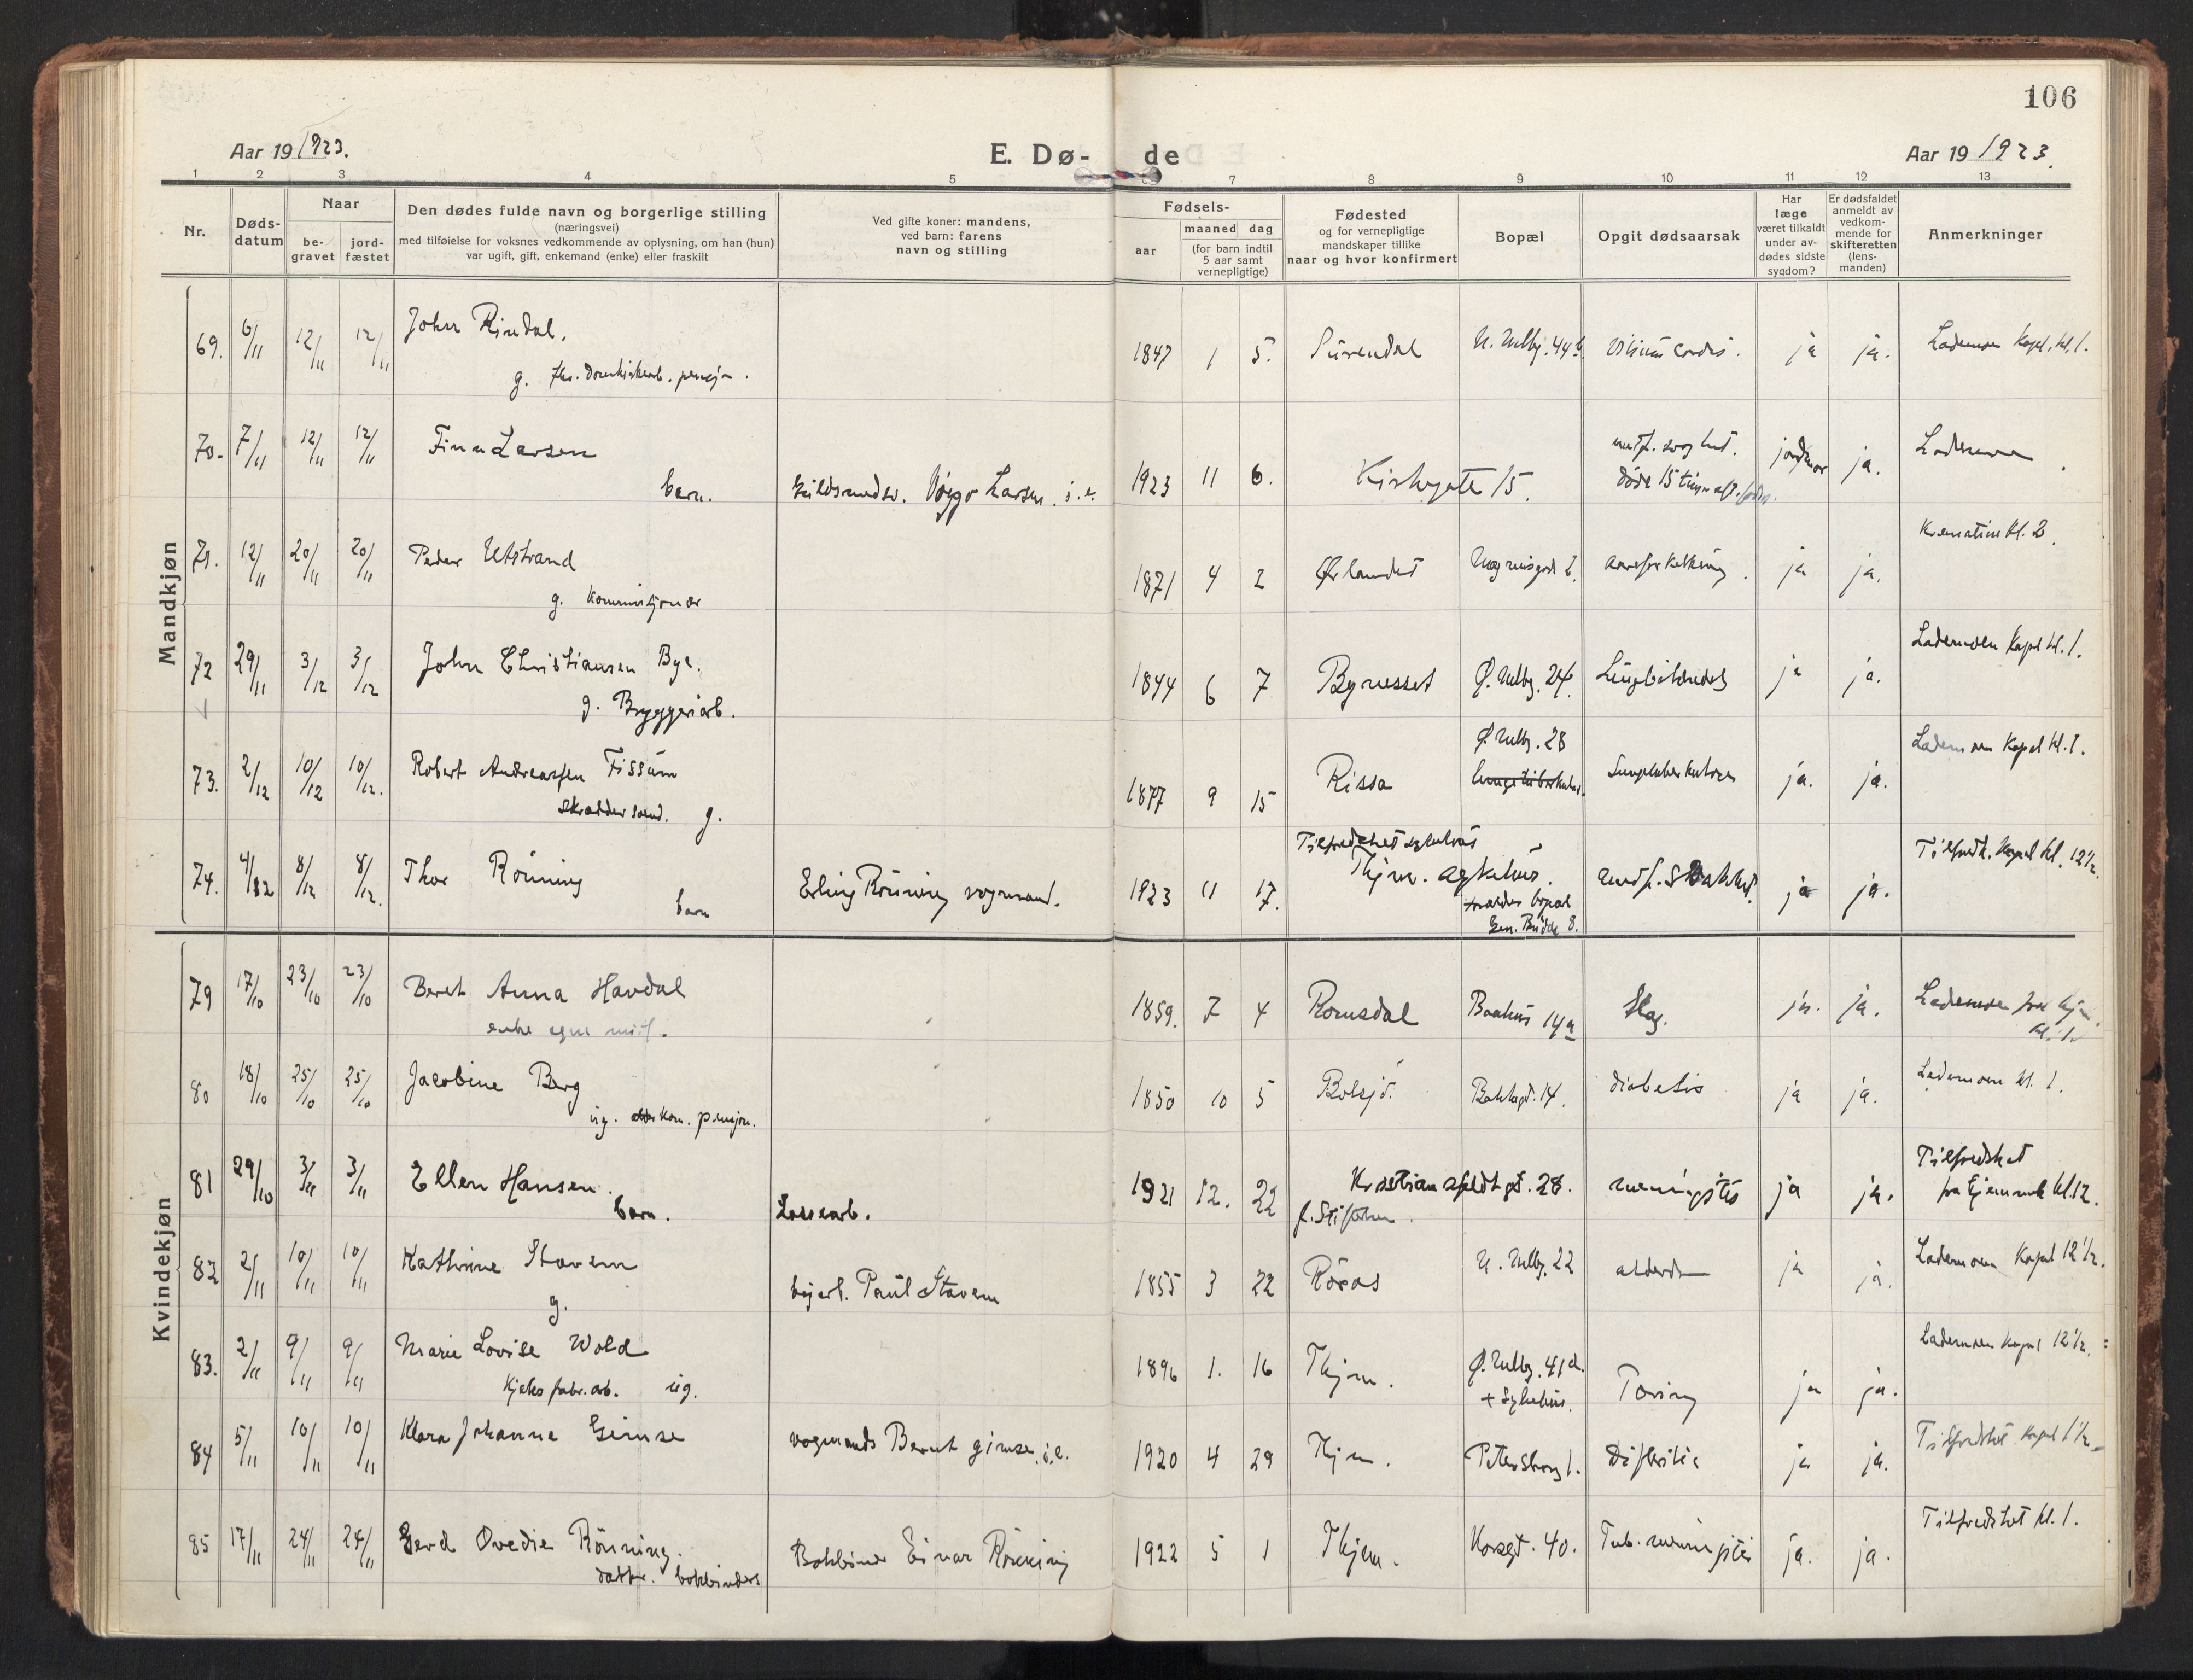 106
Aar 19 1923.
E. Dø- de
Aar 19 1923.
1 2 3 4 5 7 8 9 10 11 12 13
Nr.
Døds-
datum
Naar
be-
gravet
jord-
fæstet
Den dødes fulde navn og borgerlige stilling
(næringsvei)
med tilføielse for voksnes vedkommende av oplysning, om han (hun)
var ugift, gift, enkemand (enke) eller fraskilt
Ved gifte koner: mandens,
ved barn: farens
navn og stilling
Fødsels-
aar
maaned dag
(for barn indtil
5 aar samt
vernepligtige)
Fødested
og for vernepligtige
mandskaper tillike
naar og hvor konfirmert
Bopæl
Opgit dødsaarsak
Har
læge
været tilkaldt
under av-
dødes sidste
sygdom?
Er dødsfaldet
anmeldt av
vedkom-
mende for
skifteretten
(lens-
manden)
Anmerkninger
Mandkjøn
69. 6/11 12/11 12/11 John Rindal. 1847 1 5. Surendal vitium cordis. ja ja. Lademoen Kapel, kl. 1.
g.
70. 7/11 12/11 12/11 Finn Larsen
barn. Viggo Larsen 1923 11 6. Kirkegate 15. jordmor ja. Lademoen
døde 15 timer
71. 12/11 20/11 20/11 Peder Utstrand 1871 4 2 Ørlandet aareforkalkning. ja ja. Kremation kl. 2.
g. kommisjonær
72 29/11 3/12 3/12 John Christiansen Bye. 1844 6 7 Bynesset Ø. Mllbg. 24. ja ja. Lademoen Kapel kl. 1.
g. Bryggeriarb.
73. 2/12 10/12 10/12. Robert Andreassen Fissum 1877 9 15 Rissa Ø. Mllbg. 28 Lungetuberkulose ja. ja. Lademoen Kapel kl. 1.
skræddersvend. g.
74. 4/12 8/12 8/12. Thor Rønning
barn Erling Rønning vognmand. 1923 11 17. Tilfredshet sykehus
Thjem. sykehus. ja ja. Tilfredh. Kapel kl. 12½.
Gen. Budde 8.
Kvindekjøn
79 17/10 23/10 23/10 Beret Anna Havdal 1859. 7 4 Romsdal 14a Slag. ja. ja. Lademoen fra hjem. kl. 1.
80 18/10 25/10 25/10 Jacobine Berg 1850 10 5 Bolsø. Baklagt. 14. diabetes ja ja. Lademoen kl. 1.
ug. pensjon.
81 29/10 3/11 3/11 Ellen Hansen.
barn. Lossearb. 1921 12. 22 Kristiansfeldtgt. 28. meningitis ja ja. Tilfredshet
fra hjemmet kl. 12.
f. Stiftelsen.
82 2/11 10/11 10/11 Kathrine Stavem
g. Paul Stavem 1855 3 22 Røros N. Mllbg. 22 ja ja. Lademoen Kapel 12½.
83. 2/11 9/11 9/11 Marie Lovise Wold 1896 1. 16 Thjem. Ø. Mllbg. 41d. Tæring ja ja. Lademoen Kapel 12½.
+ Sykehus.
Kjeksfabr.arb. ug.
84 5/11 10/11 10/11 Klara Johanne Gimse vognmands Bernt Gimse. i.e. 1920 4 29 Thjem. Petersborg 1. difteritis ja ja. Tilfredshet Kapel 1½
85 17/11 24/11 24/11 Gerd Ovedie Rønning. Bokbinder Einar Rønning 1922 5 1 Thjem. Korsgt. 40. Tub. meningitis ja. ja. Tilfredshet kl. 1.
datter. bokbinders